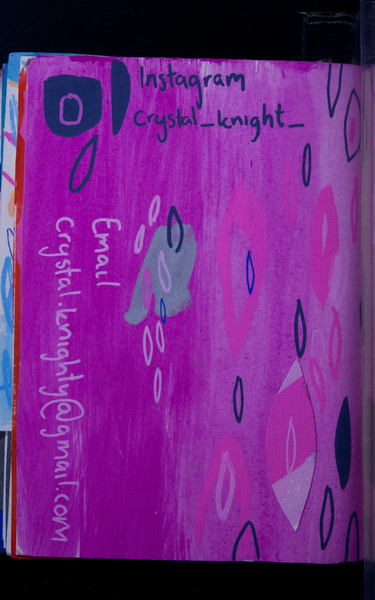 Instagram
Crystal_knight_
Email
Crystal.knighty@gmail.com